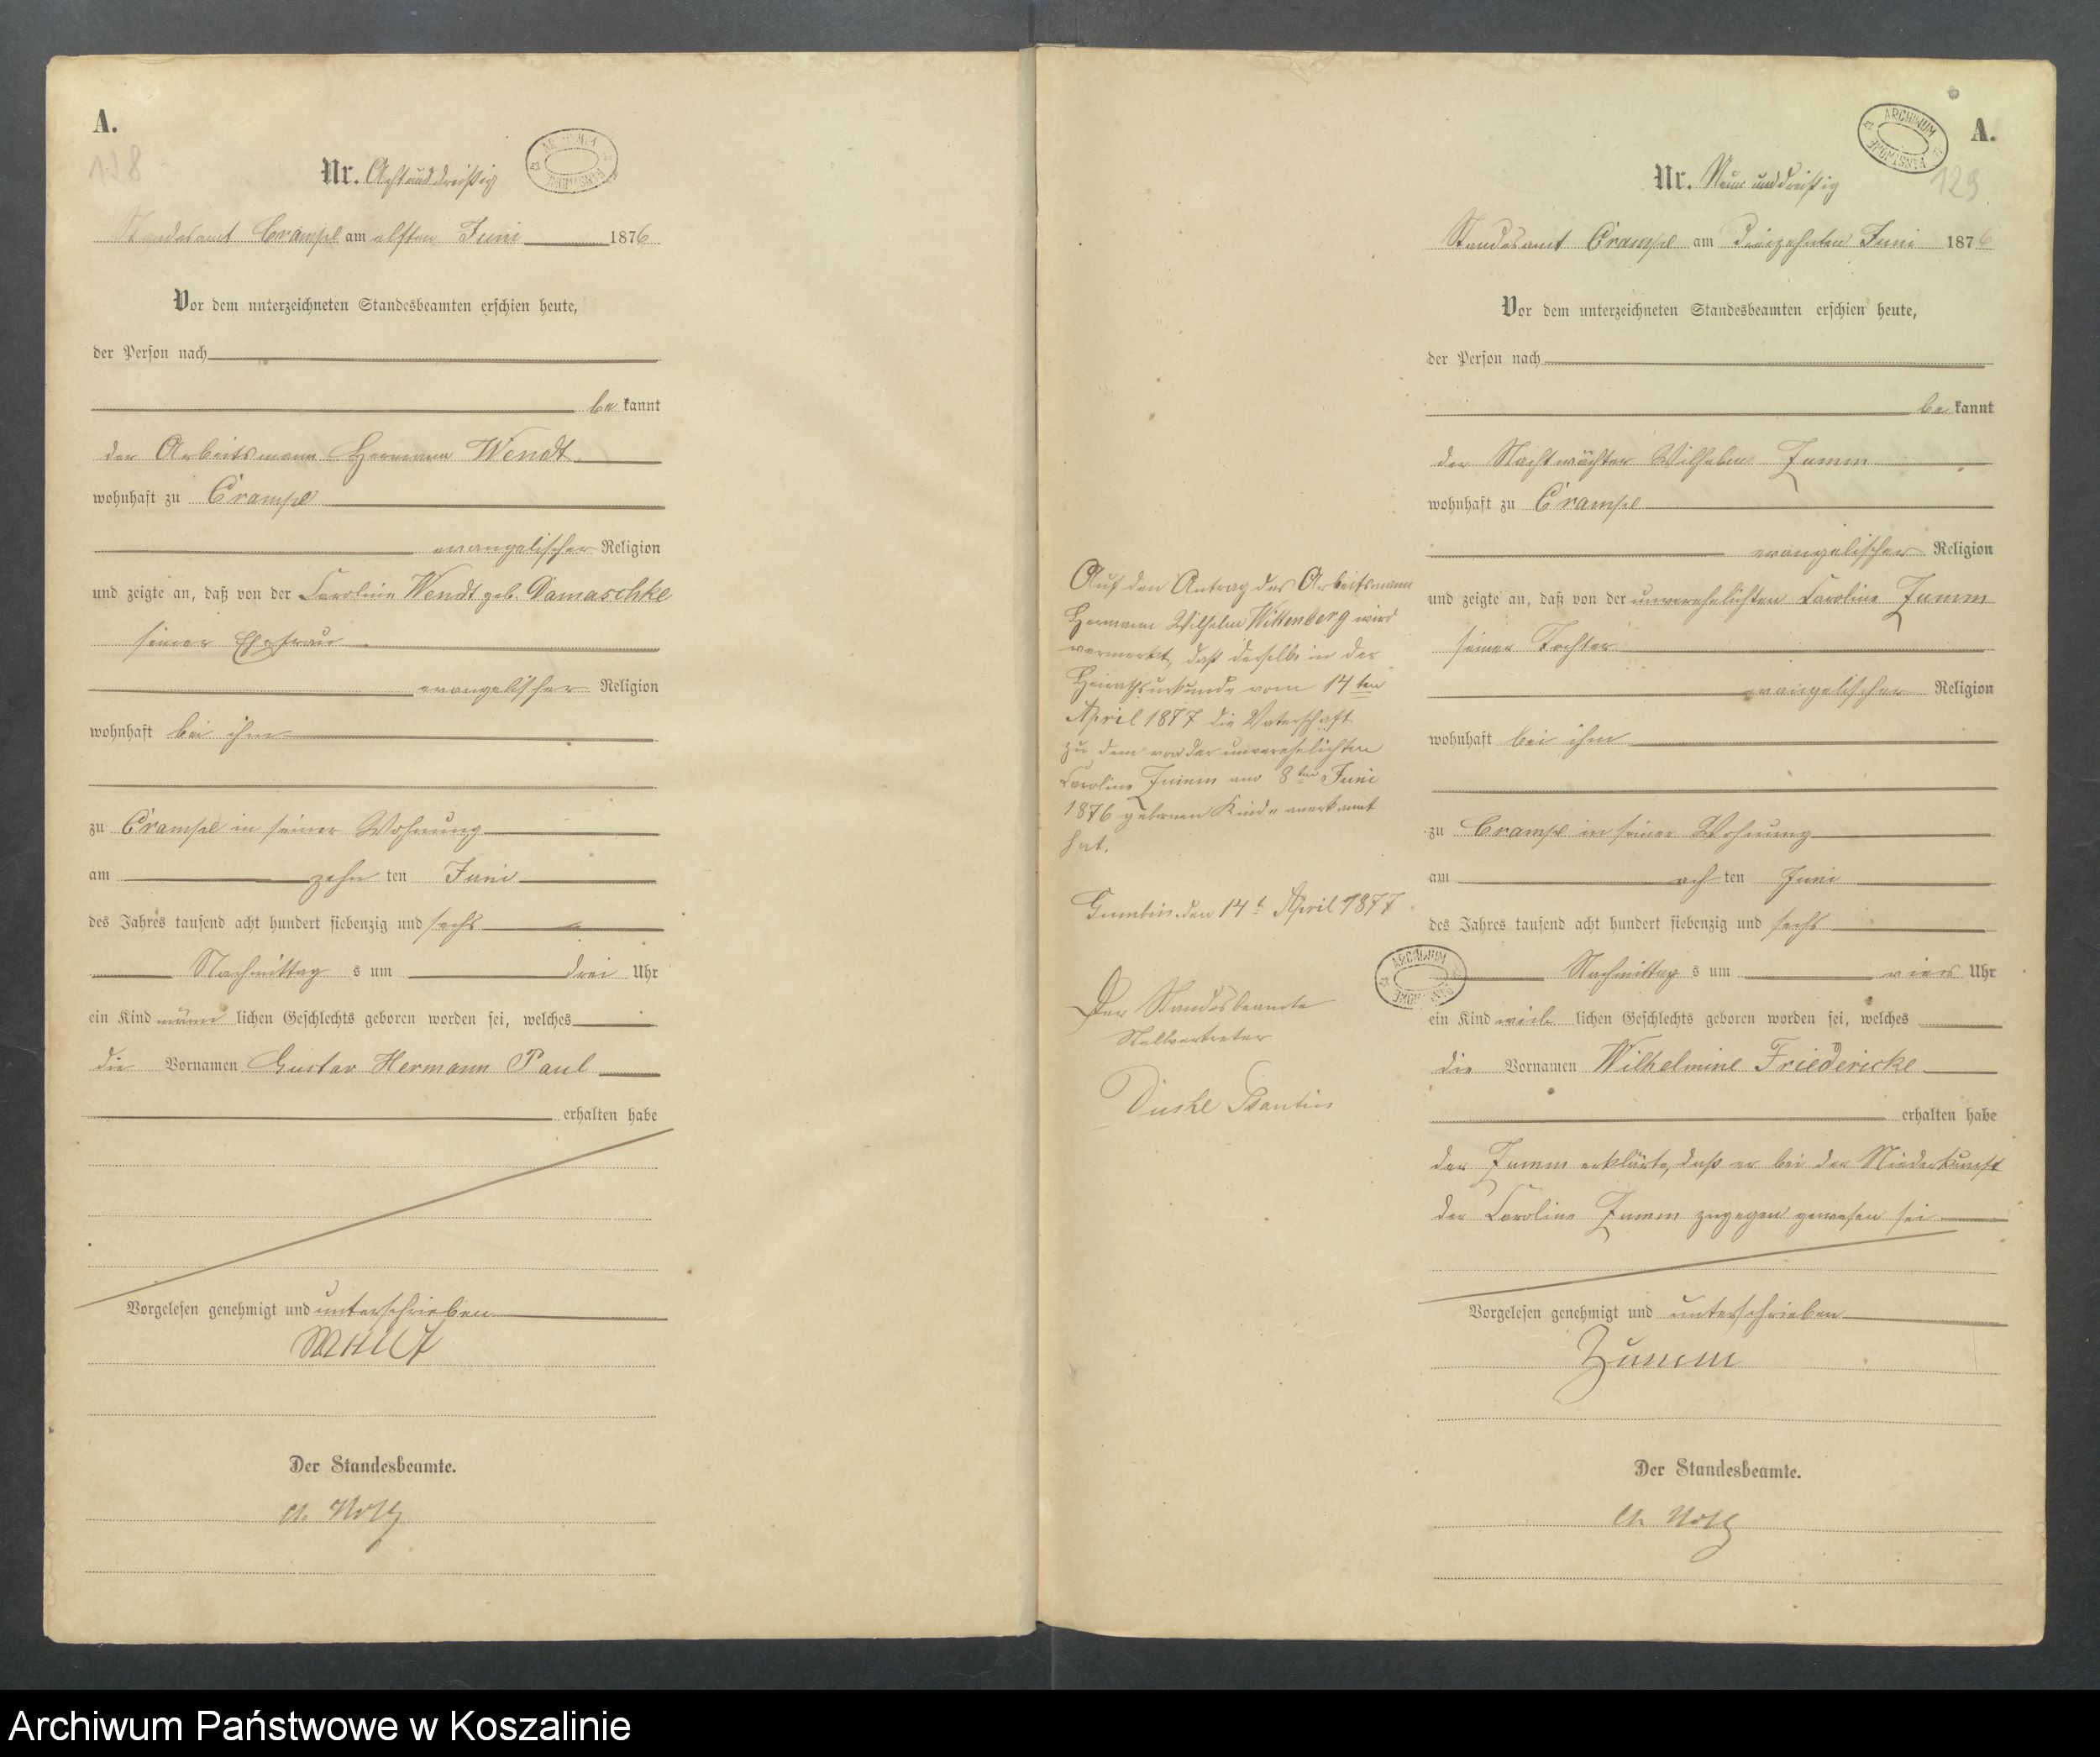 A.
128
Nr. Acht und dreißig
Standesamt Crampe am elften Juni 1876
Vor dem unterzeichneten Standesbeamten erschien heute,
der Person nach
be kannt
der Arbeitsmann Hermann Wendt
wohnhaft zu Crampe
evangelischer Religion
und zeigte an, daß von der Caroline Wendt geb. Damaschke
seiner Ehefrau
evangelischer Religion
wohnhaft bei ihm
zu Crampe in seiner Wohnung
am zehn ten Juni
des Jahres tausend acht hundert siebenzig und sechs
Nachmittag s um drei Uhr
ein Kind männ lichen Geschlechts geboren worden sei, welches
die Vornamen Gustav Hermann Paul
erhalten habe
Vorgelesen genehmigt und unterschrieben
Wendt
Der Standesbeamte.
Auf den Antrag des Arbeitsmann
Hermann Wilhelm Wittenberg wird
vermerkt, daß derselbe in der
Heirathsurkunde vom 14ten
April 1877 die Vaterschaft
zu dem von der unverehelichten
Caroline Zumm am 8ten Juni
1876 geborenen Kinde anerkannt
hat.
den 14t April 1877
Der Standesbeamte
Stellvertreter
A.
129
ARCHIWUM PAŃSTWOWE
Nr. Neun und dreißig
Standesamt Crampe am dreizehnten Juni 1876
Vor dem unterzeichneten Standesbeamten erschien heute,
der Person nach
be kannt
der Nachtwächter Wilhelm Zumm
wohnhaft zu Crampe
evangelischer Religion
und zeigte an, daß von der unverehelichten Caroline Zumm
seiner Tochter
evangelischer Religion
wohnhaft bei ihm
zu Crampe in seiner Wohnung
am ach ten Juni
des Jahres tausend acht hundert siebenzig und sechs
Nachmittag s um vier Uhr
ein Kind weib lichen Geschlechts geboren worden sei, welches
die Vornamen Wilhelmine Friedericke
erhalten habe
der Zumm erklärte, daß er bei der Niederkunft
der Caroline Zumm zugegen gewesen sei
Vorgelesen genehmigt und unterschrieben
Zumm
Der Standesbeamte.
Archiwum Państwowe w Koszalinie